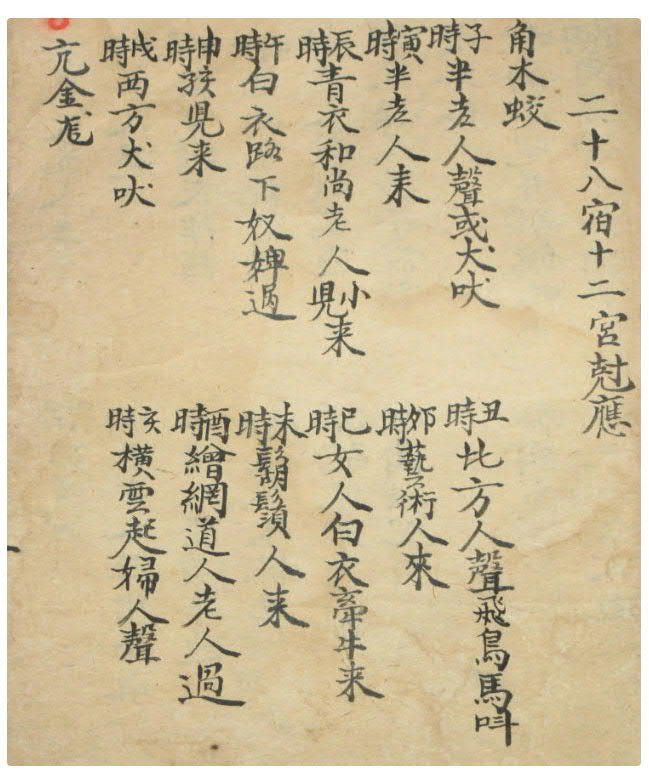 二十八宿十二宮尅應
角木蛟
子時半老人聲或犬吠
丑時北方人聲飛鳥馬呌
寅時半老人来
卯時藝術人來
辰時青衣和尚老人小児来
巳時女人白衣牽牛来
午時白衣路下奴婢過
未時鬍鬚人来
申時孩児来
酉時繒網道人老人過
戌時西方犬吠
亥時横雲起婦人聲
亢金龙